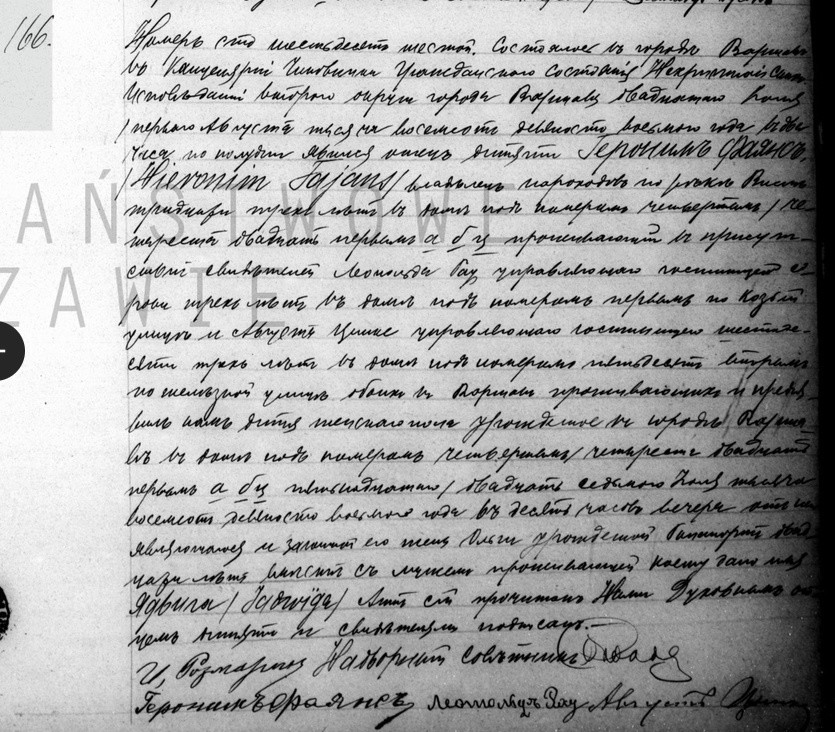 166.
Номеръ сто шестьдесятъ шестой. Состоялось въ городѣ Варшавѣ
въ Канцеляріи Чиновника Гражданскаго Состоянія Нехристіанскихъ
Исповѣданій второго округа города Варшавы двадцатаго Іюля
/ перваго Августа тысяча восемьсотъ девяносто восьмого года въ два
часа по полудни явился отецъ дитяти Геронимъ Фаянсъ,
/ Hieronim Fajans / владѣлецъ пароходовъ по рѣкѣ Вислѣ
тридцати трехъ лѣтъ въ домѣ подъ номеромъ четвертымъ / че-
тыреста двадцать первымъ а б ц проживающій въ присут-
ствіи свидѣтелей Леопольда Рау управляющаго гостиницей со-
рока трехъ лѣтъ въ домѣ подъ номеромъ первымъ по Козьей
улицѣ и Августа управляющаго гостиницею шестиде-
сяти трехъ лѣтъ въ домѣ подъ номеромъ пятьдесятъ вторымъ
по желѣзной улицѣ обоихъ въ Варшавѣ проживающихъ и предъя-
вилъ намъ дитя женскаго пола урожденное въ городѣ Варша-
вѣ въ домѣ подъ номеромъ четвертымъ / четыреста двадцать
первымъ а б ц / двадцать седьмого Іюля тысяча
восемьсотъ девяносто восьмого года въ десять часовъ вечера отъ
являющагося и законной его жены Ольги урожденной двад-
цати лѣтъ вмѣстѣ съ мужемъ проживающей коему дано имя
Ядвига / Jadwiga / Актъ сей прочитанъ Нами Духовнымъ от-
цемъ дитяти и свидѣтелями подписанъ.—
Надворный совѣтникъ
Геронимъ Фаянсъ Леопольдъ Рау Августъ
AŃSTWOWE
ZAWIE